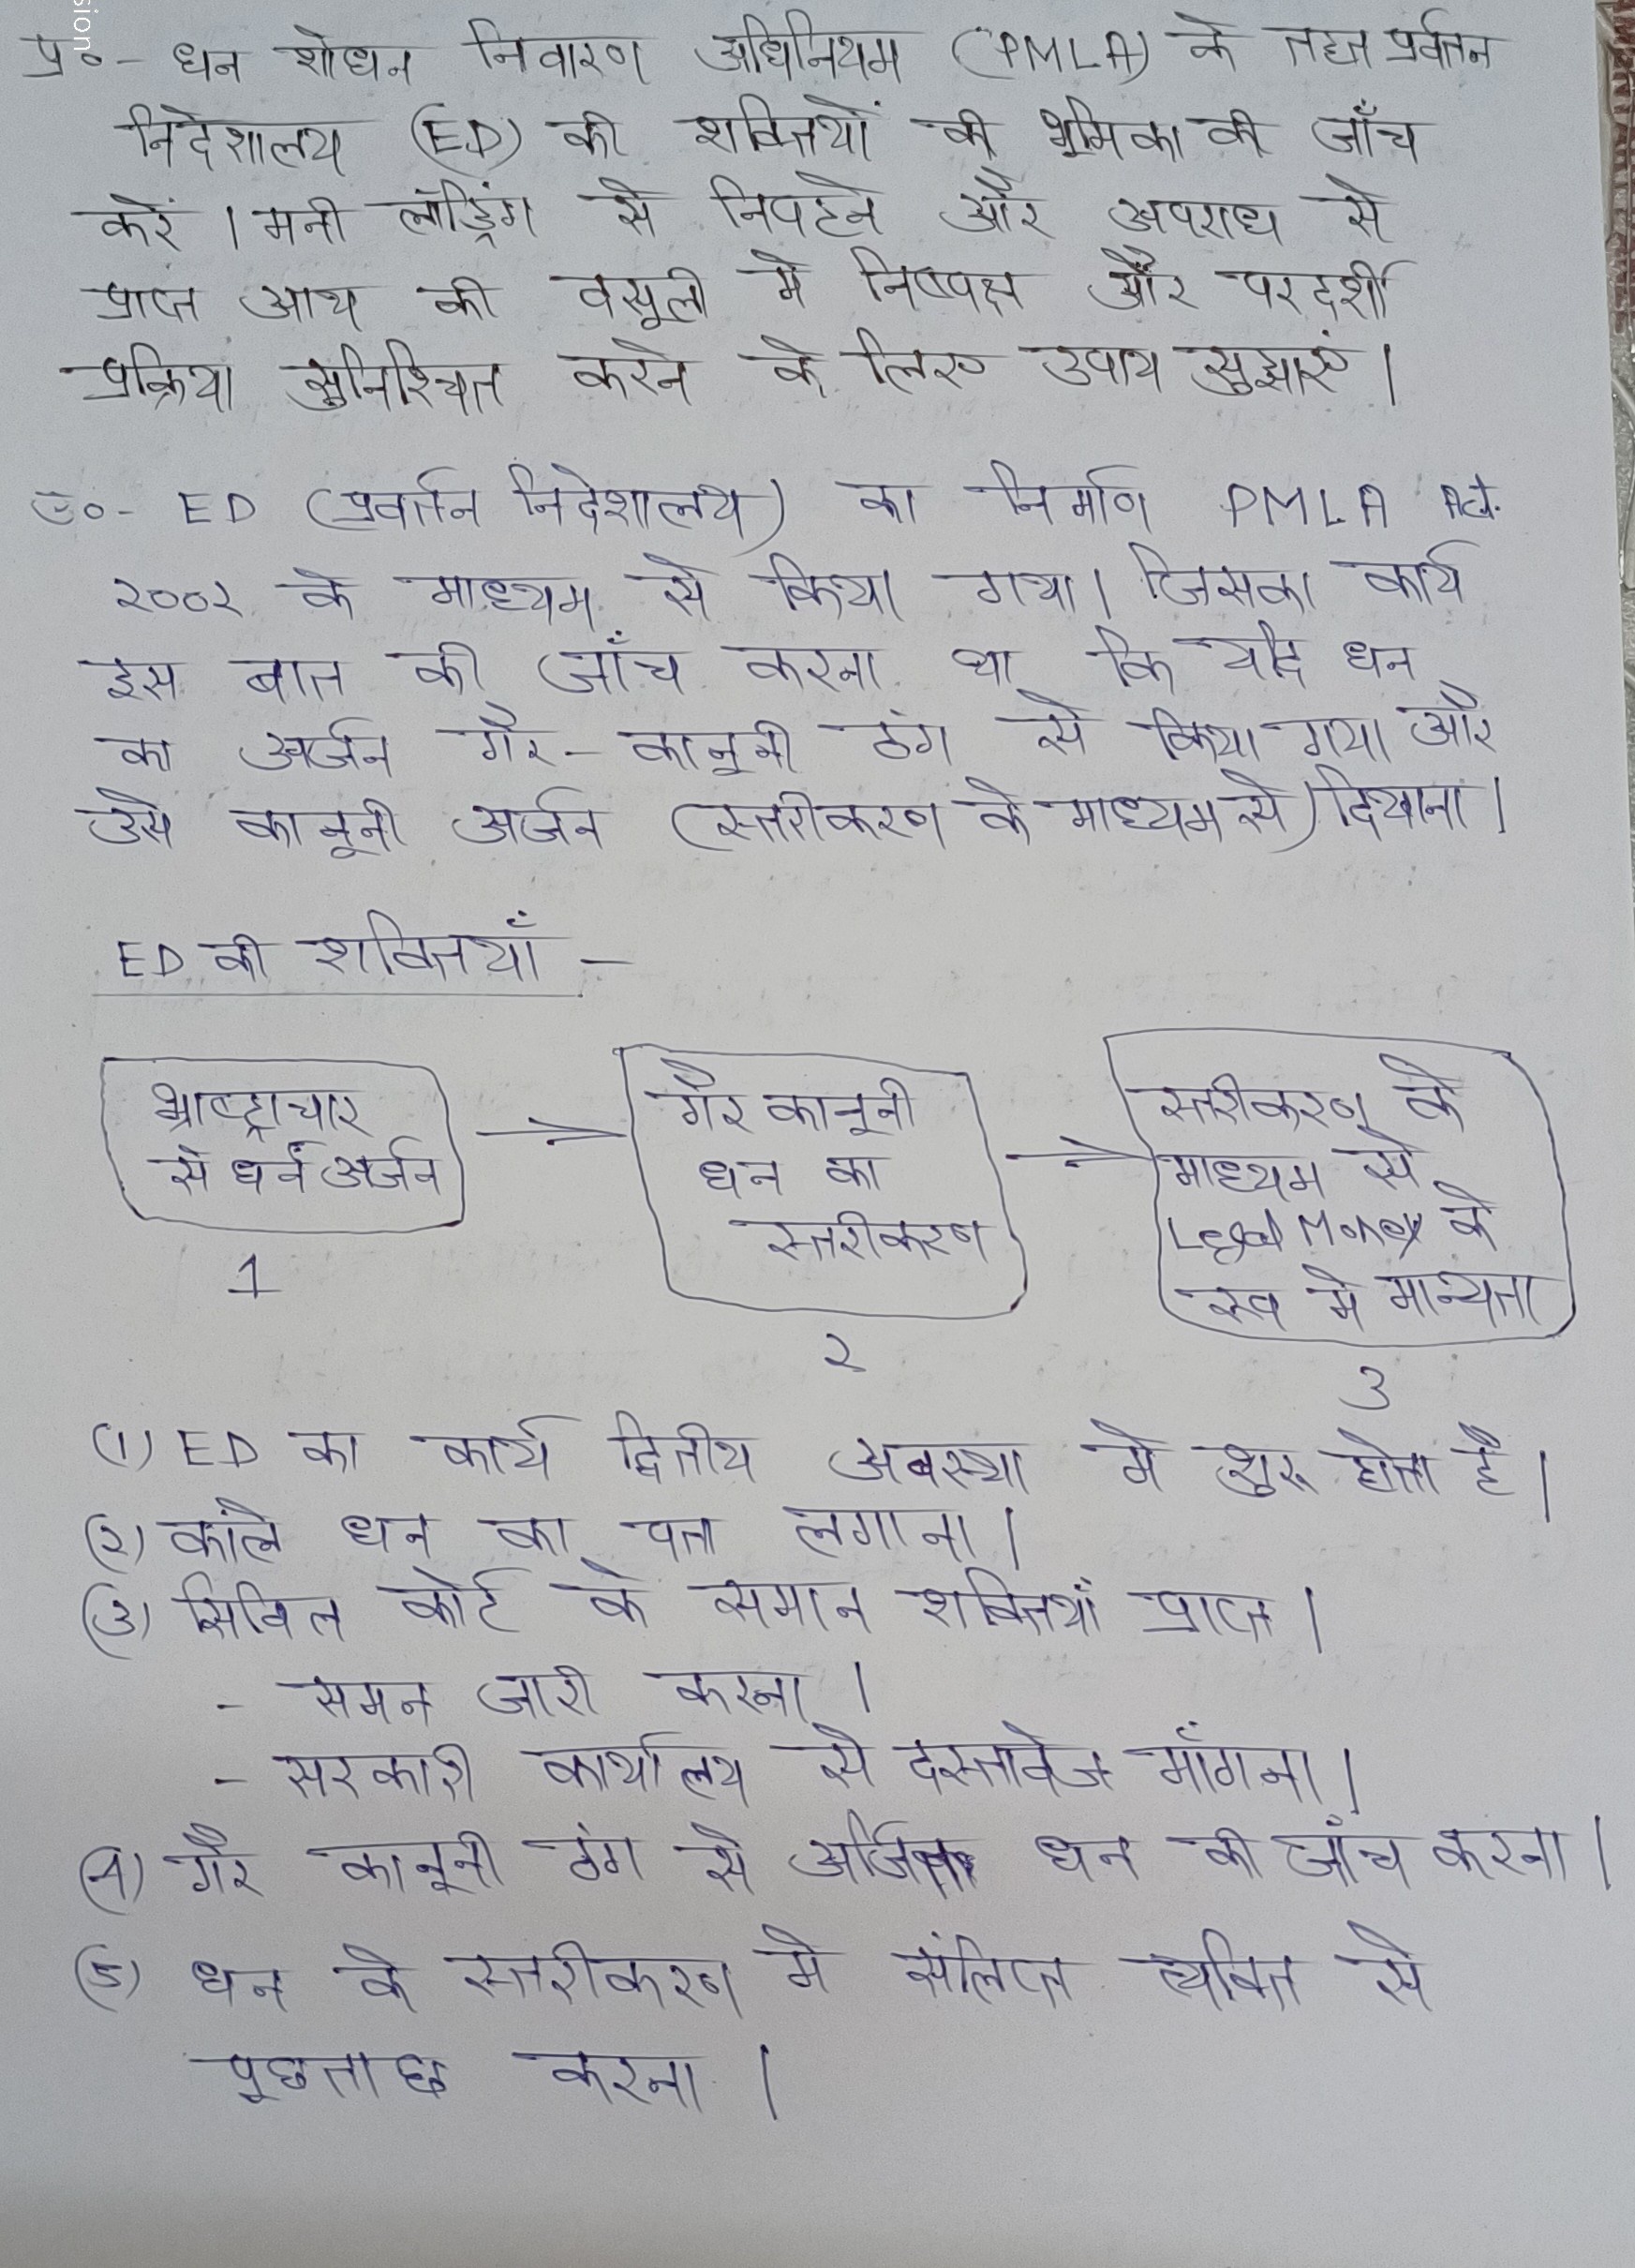 sion
प्र०- धन शोधन निवारण अधिनियम (PMLA) के तहत प्रर्वतन
निदेशालय (ED) की शक्तियों की भूमिका की जाँच
करें । मनी लॉड्रिंग से निपटने और अपराध से
प्राप्त आय की वसूली में निष्पक्ष और परदर्शी
प्रक्रिया सुनिश्चित करने के लिए उपाय सुझाएं ।
उ०- ED (प्रवर्तन निदेशालय) का निर्माण PMLA Act.
२००२ के माध्यम से किया गया। जिसका कार्य
इस बात की जाँच करना था कि यदि धन
का अर्जन गैर-कानूनी ढंग से किया गया और
उसे कानूनी अर्जन (स्तरीकरण के माध्यम से) दिखाना ।
ED की शक्तियाँ -
भ्राष्ट्राचार
से धन अर्जन
1
गैर कानूनी
धन का
स्तरीकरण
२
स्तरीकरण के
माध्यम से
Legal Money के
रूप मे मान्यता
3
(1) ED का कार्य द्वितीय अवस्था मे शुरू होता है ।
(२) काले धन का पता लगाना ।
(3) सिविल कोर्ट के समान शक्तियां प्राप्त ।
- समन जारी करना ।
- सरकारी कार्यालय से दस्तावेज माँगना ।
(4) गैर कानूनी ढंग से अर्जित धन की जाँच करना ।
(5) धन के स्तरीकरण मे संलिप्त व्यक्ति से
पूछताछ करना ।